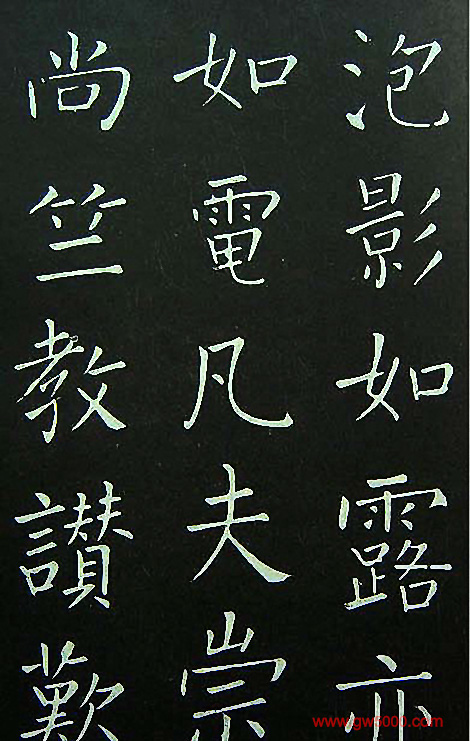 泡影如露亦
如電凡夫崇
尚竺教讃歎
www.gw5000.com